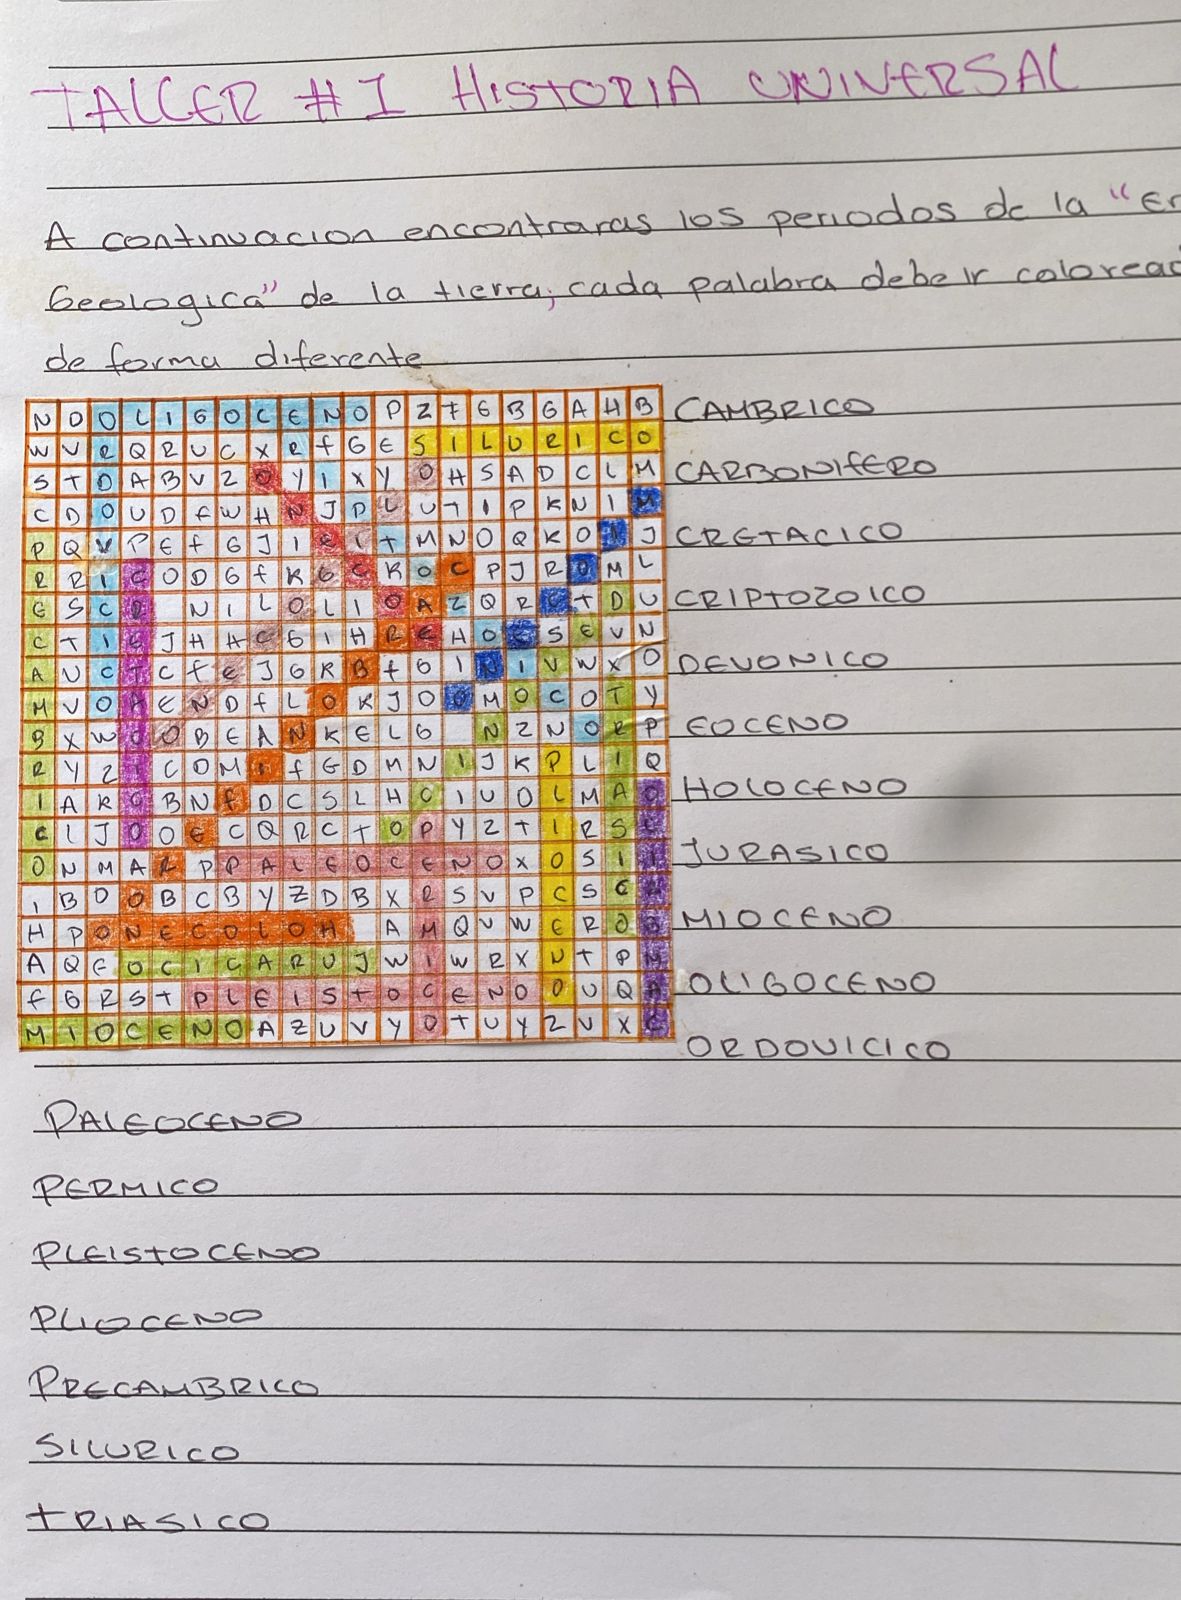 TALLER #1 HISTORIA UNIVERSAL
A continuacion encontraras los periodos de la "
Geologica" de la tierra; cada palabra debe ir
de forma diferente
N D O L I G O C E N O P Z T G B G A H B
CAMBRICO
W V R Q R U C X R F G E S I L U R I C O
S T D A B V Z O Y I X Y O H S A D C L M
CARBONIFERO
C D O U D F W H N J D L U T I P K N I M
P Q V P E F G J I E I T M N O Q K O I J
CRETACICO
R R I C O D G F K G C K O C P J R O M L
E S C R N I L O L I O A Z Q R C T D U
CRIPTOZOICO
C T I E J H H C G I H R E H O E S E V N
A U C T C F E J G K B F G I N I V W X O
DEVONICO
M V O A E N D F L O K J O O M O C O T Y
B X W C O B E A N K E L G N Z N O R P
EOCENO
R Y Z I C O M I F G D M N I J K P L I Q
I A K C B N F D C S L H C I U O L M A O
HOLOCENO
C L J O O E C Q R C T O P Y Z T I R S C
O N M A R P P A L E O C E N O X O S I I
JURASICO
I B D O B C B Y Z D B X R S V P C S C R
H P O N E C O L O H A M Q V W E R O B
MIOCENO
A Q E O C I C A R U J W I W R X N T P M
F G R S T P L E I S T O C E N O O U Q A
OLIGOCENO
M I O C E N O A Z U V Y O T U Y Z V X C
ORDOVICICO
PALEOCENO
PERMICO
PLEISTOCENO
PLIOCENO
PRECAMBRICO
SILURICO
TRIASICO